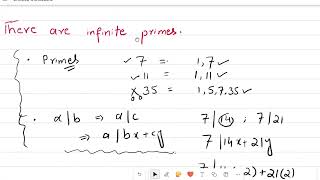 There are infinite primes.
• Primes ✓ 7 = 1,7 ✓
✓ 11 = 1,11 ✓
✗ 35 = 1,5,7,35 ✓
• a|b ⇒ a|c 7|14 ; 7|21
⇒ a|bx+cy 7|14x+21y
2)+21(2)